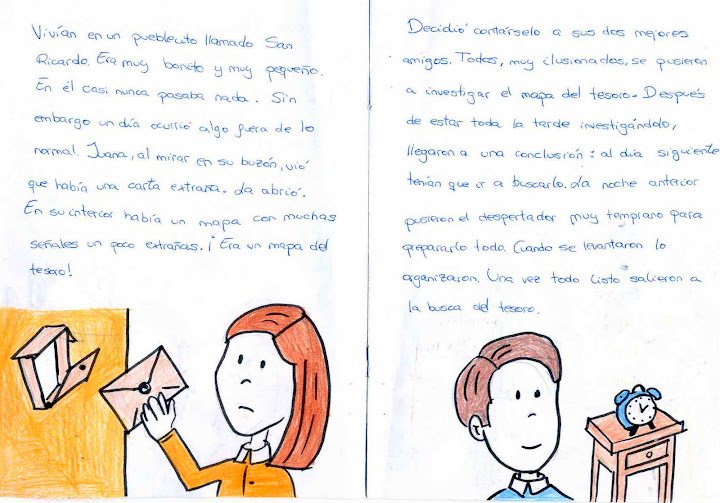 Vivían en un pueblecito llamado San
Ricardo. Era muy bonito y muy pequeño.
En él casi nunca pasaba nada. Sin
embargo un día ocurrió algo fuera de lo
normal. Juana, al mirar en su buzón, vió
que había una carta extraña. La abrió.
En su interior había un mapa con muchas
señales un poco extrañas. ¡Era un mapa del
tesoro!
Decidió contárselo a sus dos mejores
amigos. Todos, muy ilusionados, se pusieron
a investigar el mapa del tesoro. Después
de estar toda la tarde investigándolo,
llegaron a una conclusión: al día siguiente
tenían que ir a buscarlo. La noche anterior
pusieron el despertador muy temprano para
prepararlo todo. Cuando se levantaron lo
organizaron. Una vez todo listo salieron a
la busca del tesoro.